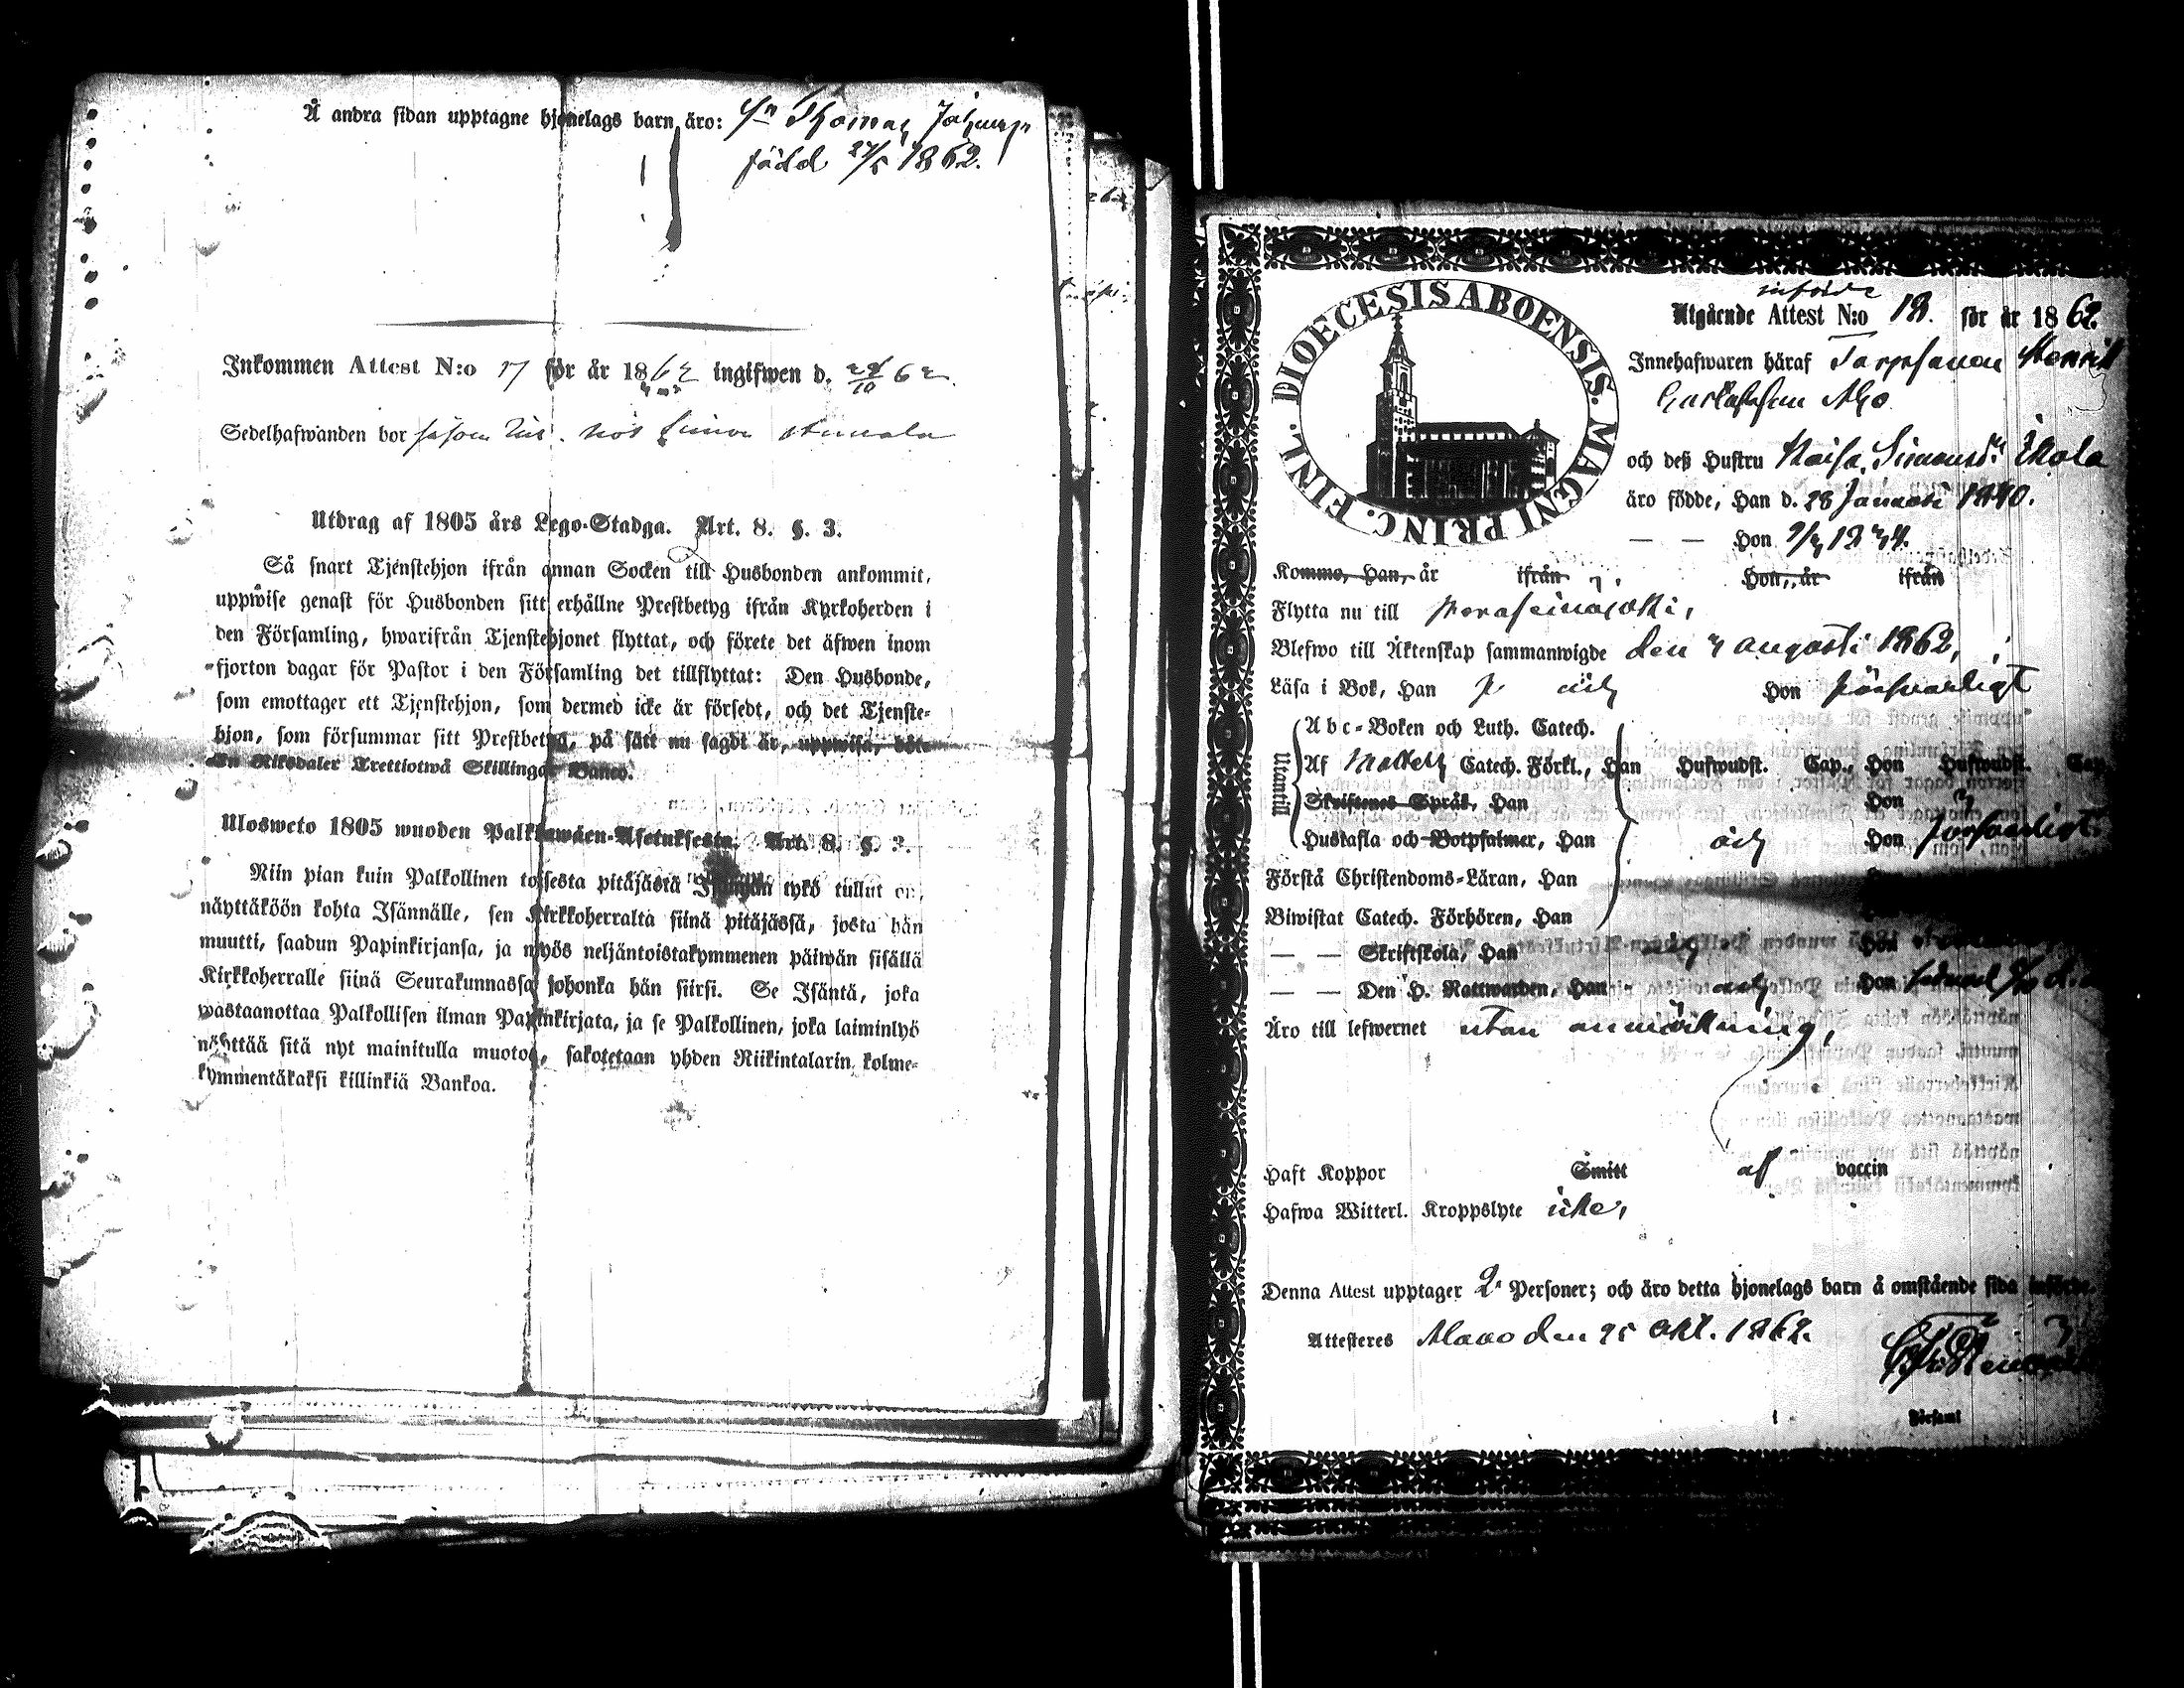 Å andra sidan upptagne hjonelags barn äro: Sn Thomas
född 27/5 1862.
Inkommen Attest N:o 17 för år 1862 ingifwen d. 28/10 62
Sedelhafwanden bor såsom hos Simon
Utdrag af 1805 års Lego-Stadga. Art. 8. §. 3.
Så snart Tjenstehjon ifrån annan Socken till Husbonden ankommit,
uppwise genast för Husbonden sitt erhållne Prestbetyg ifrån Kyrkoherden i
den Församling, hwarifrån Tjenstehjonet flyttat, och förete det äfwen inom
fjorton dagar för Pastor i den Församling det tillflyttat: Den Husbonde,
som emottager ett Tjenstehjon, som dermed icke är försedt, och det Tjenste-
hjon, som försummar sitt Prestbetyg, på sätt nu sagdt är, uppwisa, böte
En Riksdaler Trettiotwå Skillingar Banco.
Ulosweto 1805 wuoden Palkkawäen-Asetuksesta. Art. 8. §. 3.
Niin pian kuin Palkollinen toisesta pitäjästä Isännän tykö tullut on,
näyttäköön kohta Isännälle, sen Kirkkoherralta siinä pitäjässä, josta hän
muutti, saadun Papinkirjansa, ja myös neljäntoistakymmenen päiwän sisällä
Kirkkoherralle siinä Seurakunnassa johonka hän siirsi. Se Isäntä, joka
wastaanottaa Palkollisen ilman Papinkirjata, ja se Palkollinen, joka laiminlyö
näyttää sitä nyt mainitulla muotoa, sakotetaan yhden Riikintalarin kolme-
kymmentäkaksi killinkiä Bankoa.
DIOECESIS ABOENSIS. MAGNI PRINC. FINL.
införde
Utgående Attest N:o 18. för år 1862.
Innehafwaren häraf Torpsonen Henrik
Gustafsson Aho
och deß Hustru Kaisa Simonsdr Ekola
äro födde, Han d. 28 Januari 1840.
— — Hon 1834.
Komme, Han, år ifrån Hon, år ifrån
Flytta nu till Peraseinäjoki,
Blefwo till Äktenskap sammanwigde den 4 augusti 1862,
Läsa i Bok, Han Hon försvarligt
Utantill
Abc-Boken och Luth. Catech.
Af Catech. Förkl., Han Hufwudst. Cap., Hon Hufwudst. Cap.
Skriftenes Språk, Han Hon
Hustafla och Botpsalmer, Han Hon försvarligt
Förstå Christendoms-Läran, Han
Biwistat Catech. Förhören, Han
— — Skriftskola, Han Hon
— — Den H. Nattwarden, Han Hon
Äro till lefwernet utan anmärkning,
Haft Koppor Smitt af vaccin
Hafwa Witterl. Kroppslyte icke,
Denna Attest upptager 2 Personer; och äro detta hjonelags barn å omstående sida införde.
Attesteres Alavo den 25 Okt. 1862.
i Församl